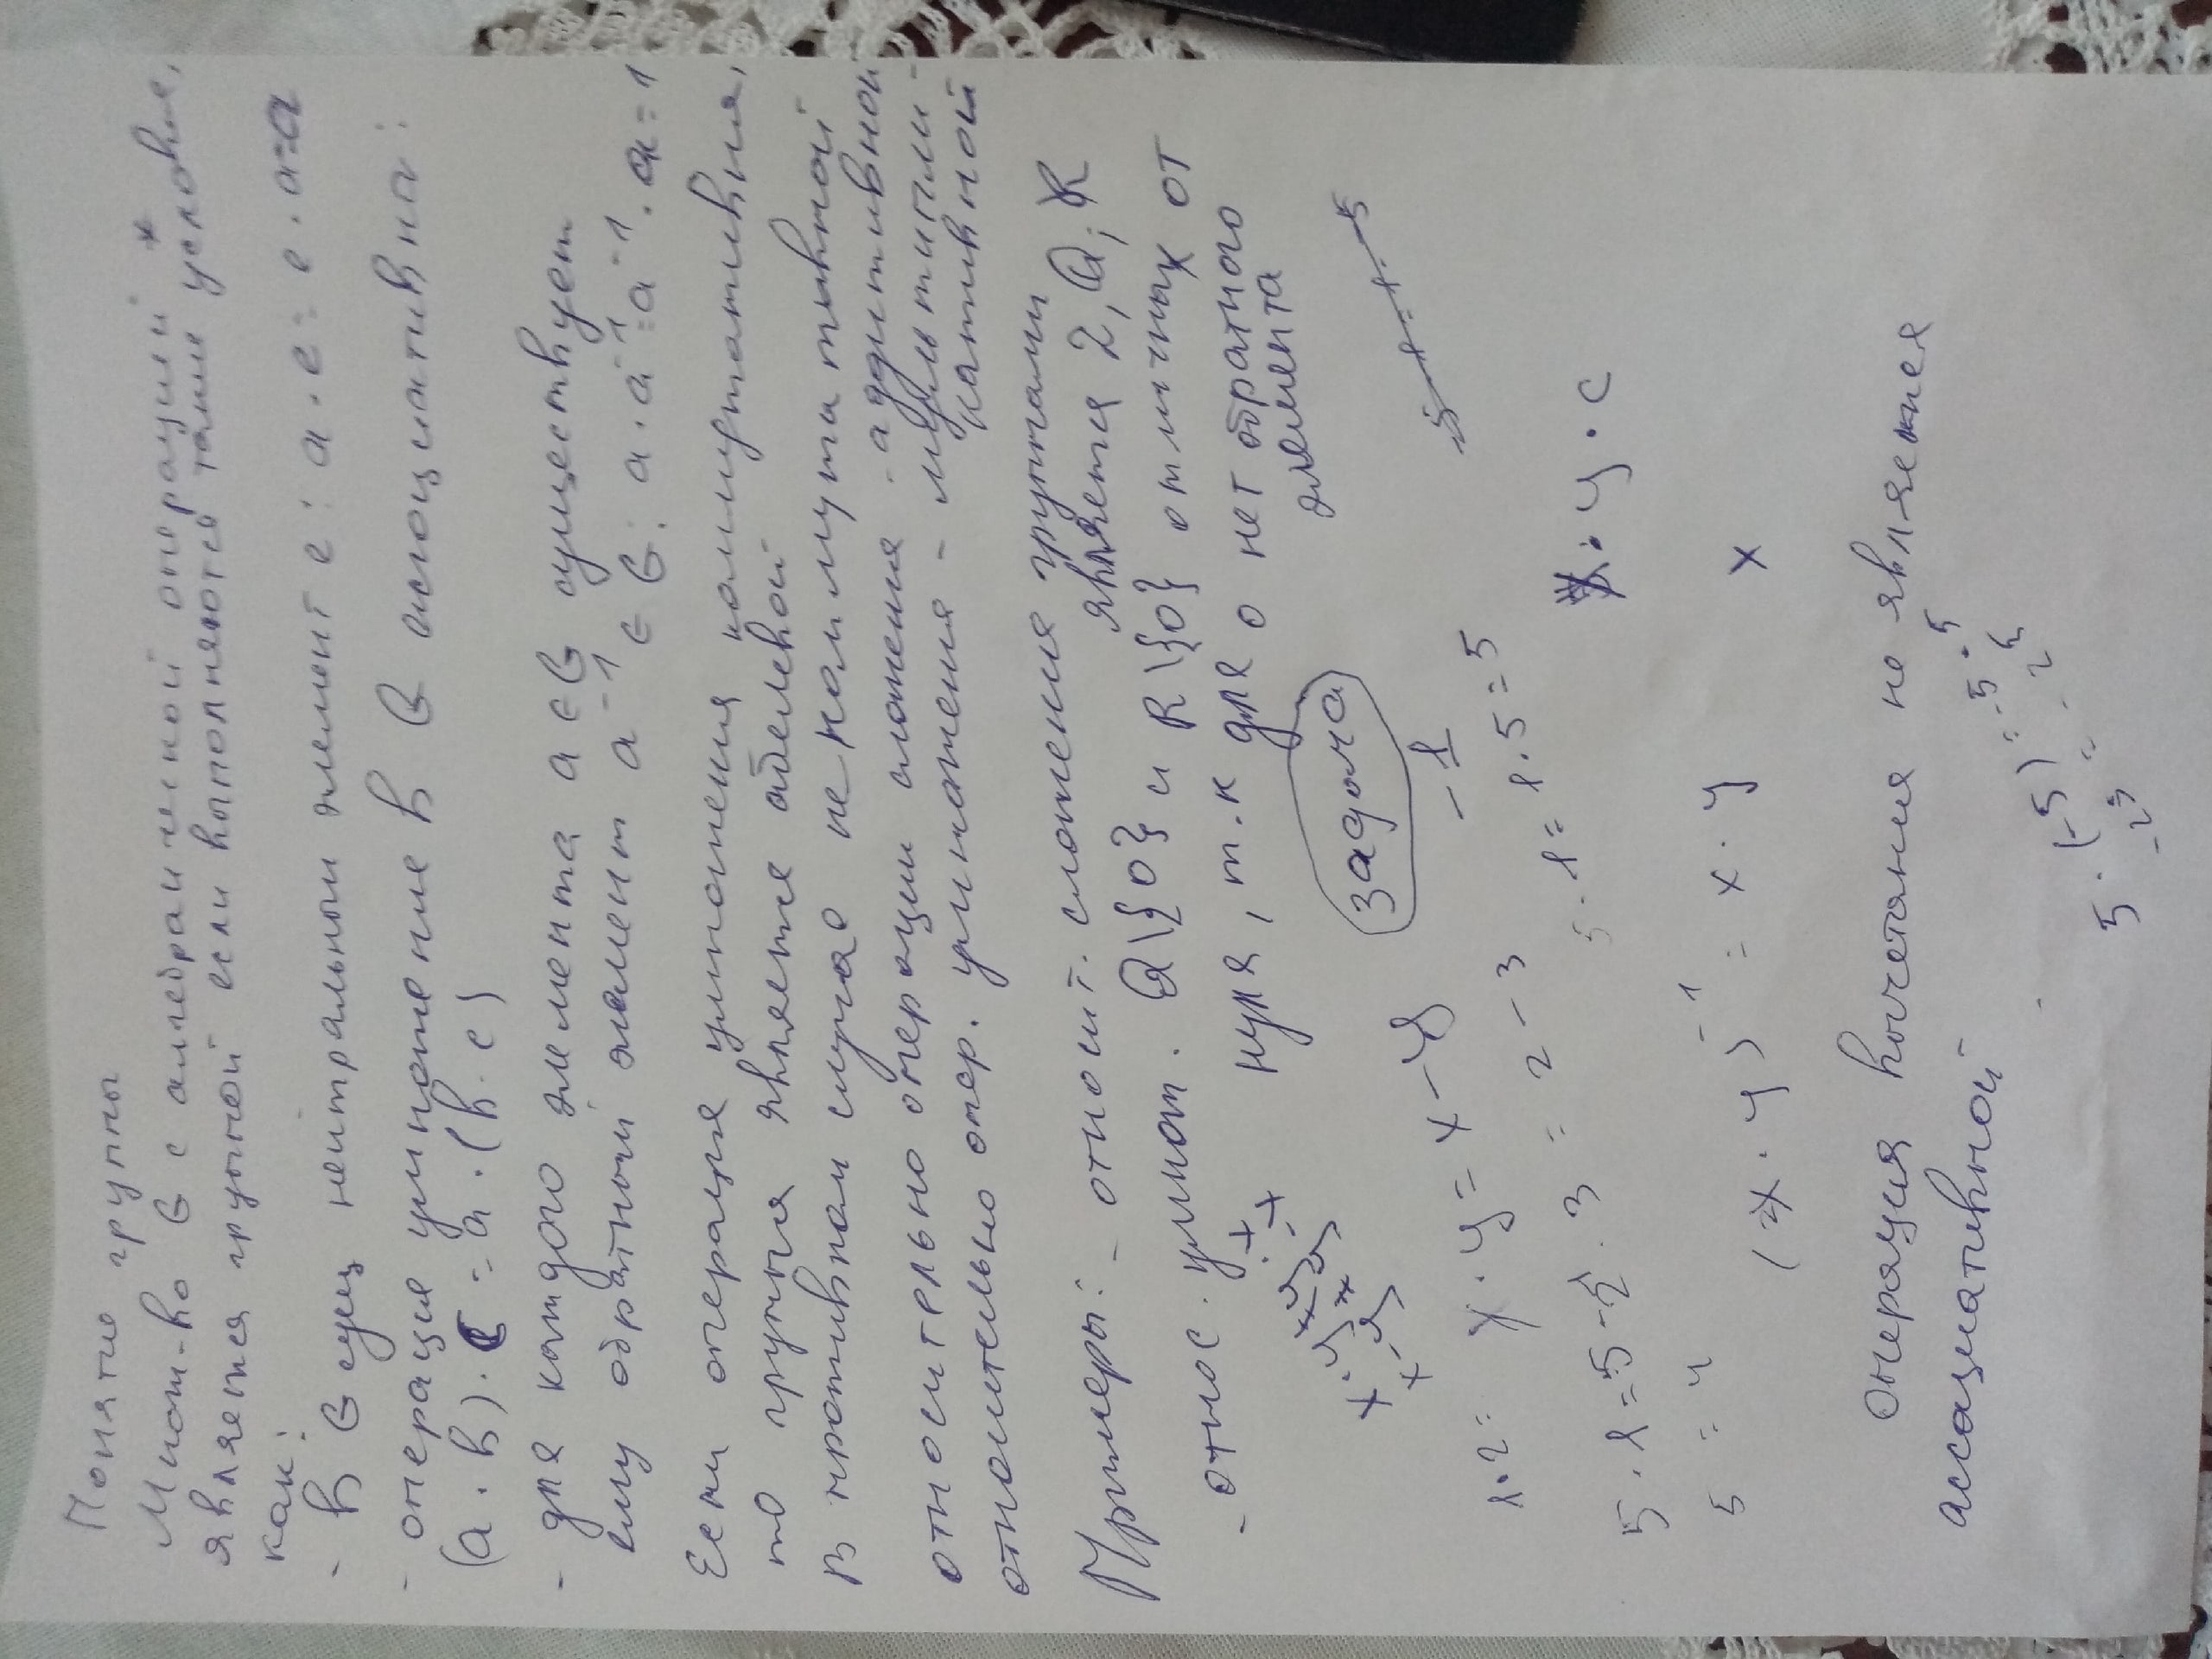 Понятие группы
Множ-во G с алгебраической операцией *
является группой если выполняются такие условие,
как:
- В G сущ нейтральный элемент e: a·e=e·a=a
- операция умножение в G ассоциативна:
(a·b)·c=a·(b·c)
- для каждого элемента a∈G существует
ему обратный элемент a⁻¹∈G: a·a⁻¹=a⁻¹·a=1
Если операция умножения коммутативна,
то группа является абелевой
В противном случае не коммутативной
относительно операции сложения - аддитивной
относительно опер. умножения - мультипли-
кативной
Примеры: - относит. сложения группами
является Z, Q, R
- относ. умнож. Q\{0} и R\{0} отличных от
нуля, т.к для 0 нет обратного
элемента
Задача
x·y=x-y
1·2=
5·1=5-2·3=2-3
5·1=1·5=5
5=4
x·y·c
(x·y)⁻¹=x·y x
Операция вычетания не является
ассациативной
5·(-5)=-5·5